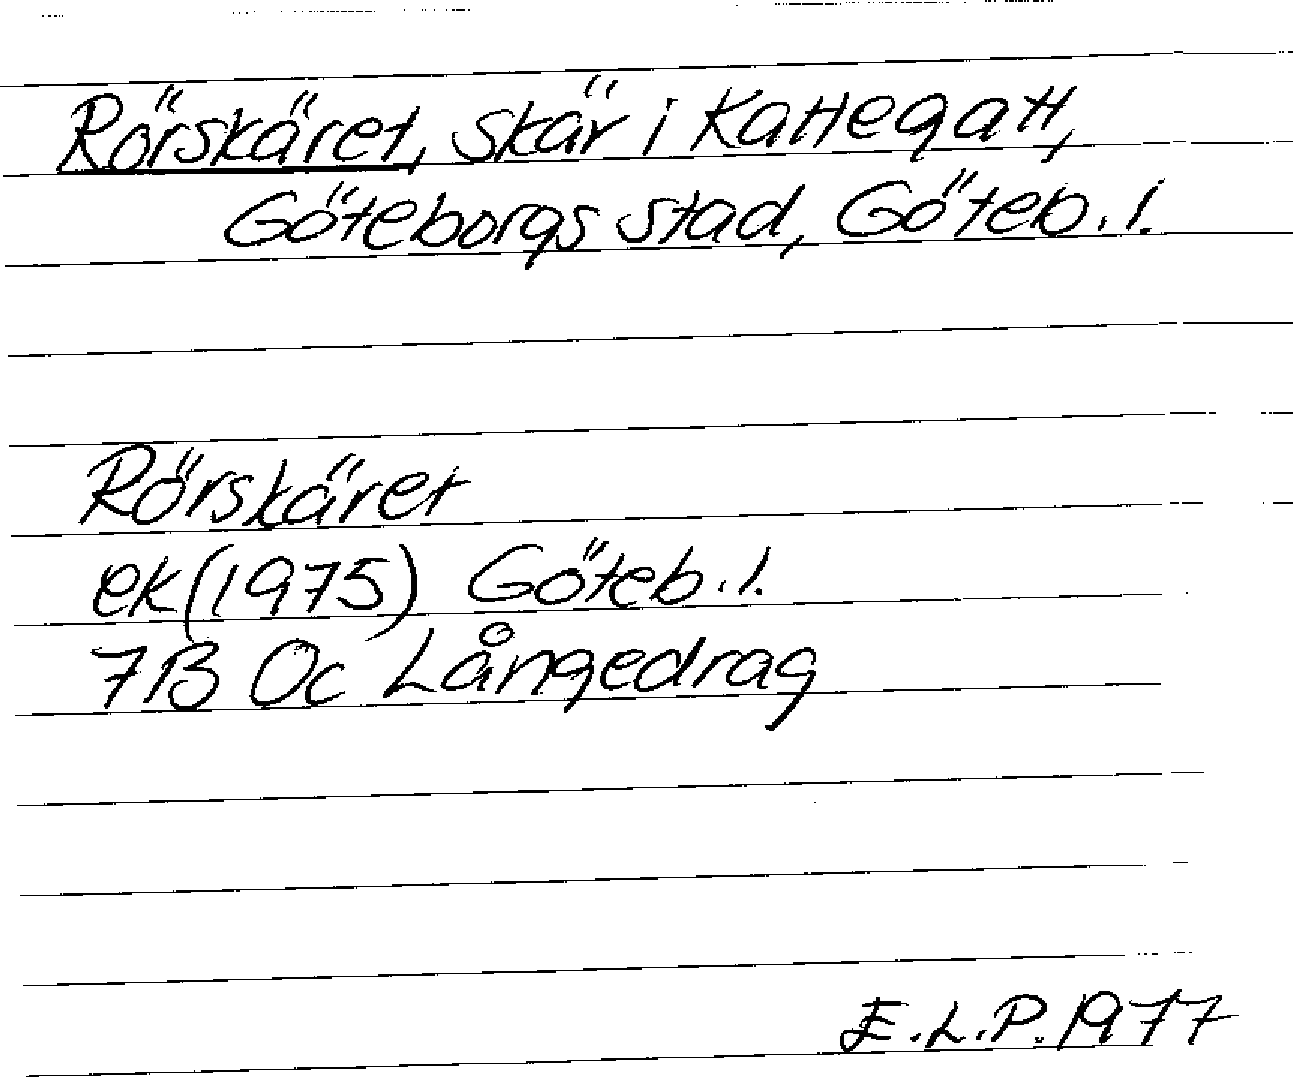 Rörskäret, skär i Kattegatt,
Göteborgs stad, Göteb. l.
Rörskäret
ek (1975) Göteb. l.
7B 0c Långedrag
E.L.P. 1977